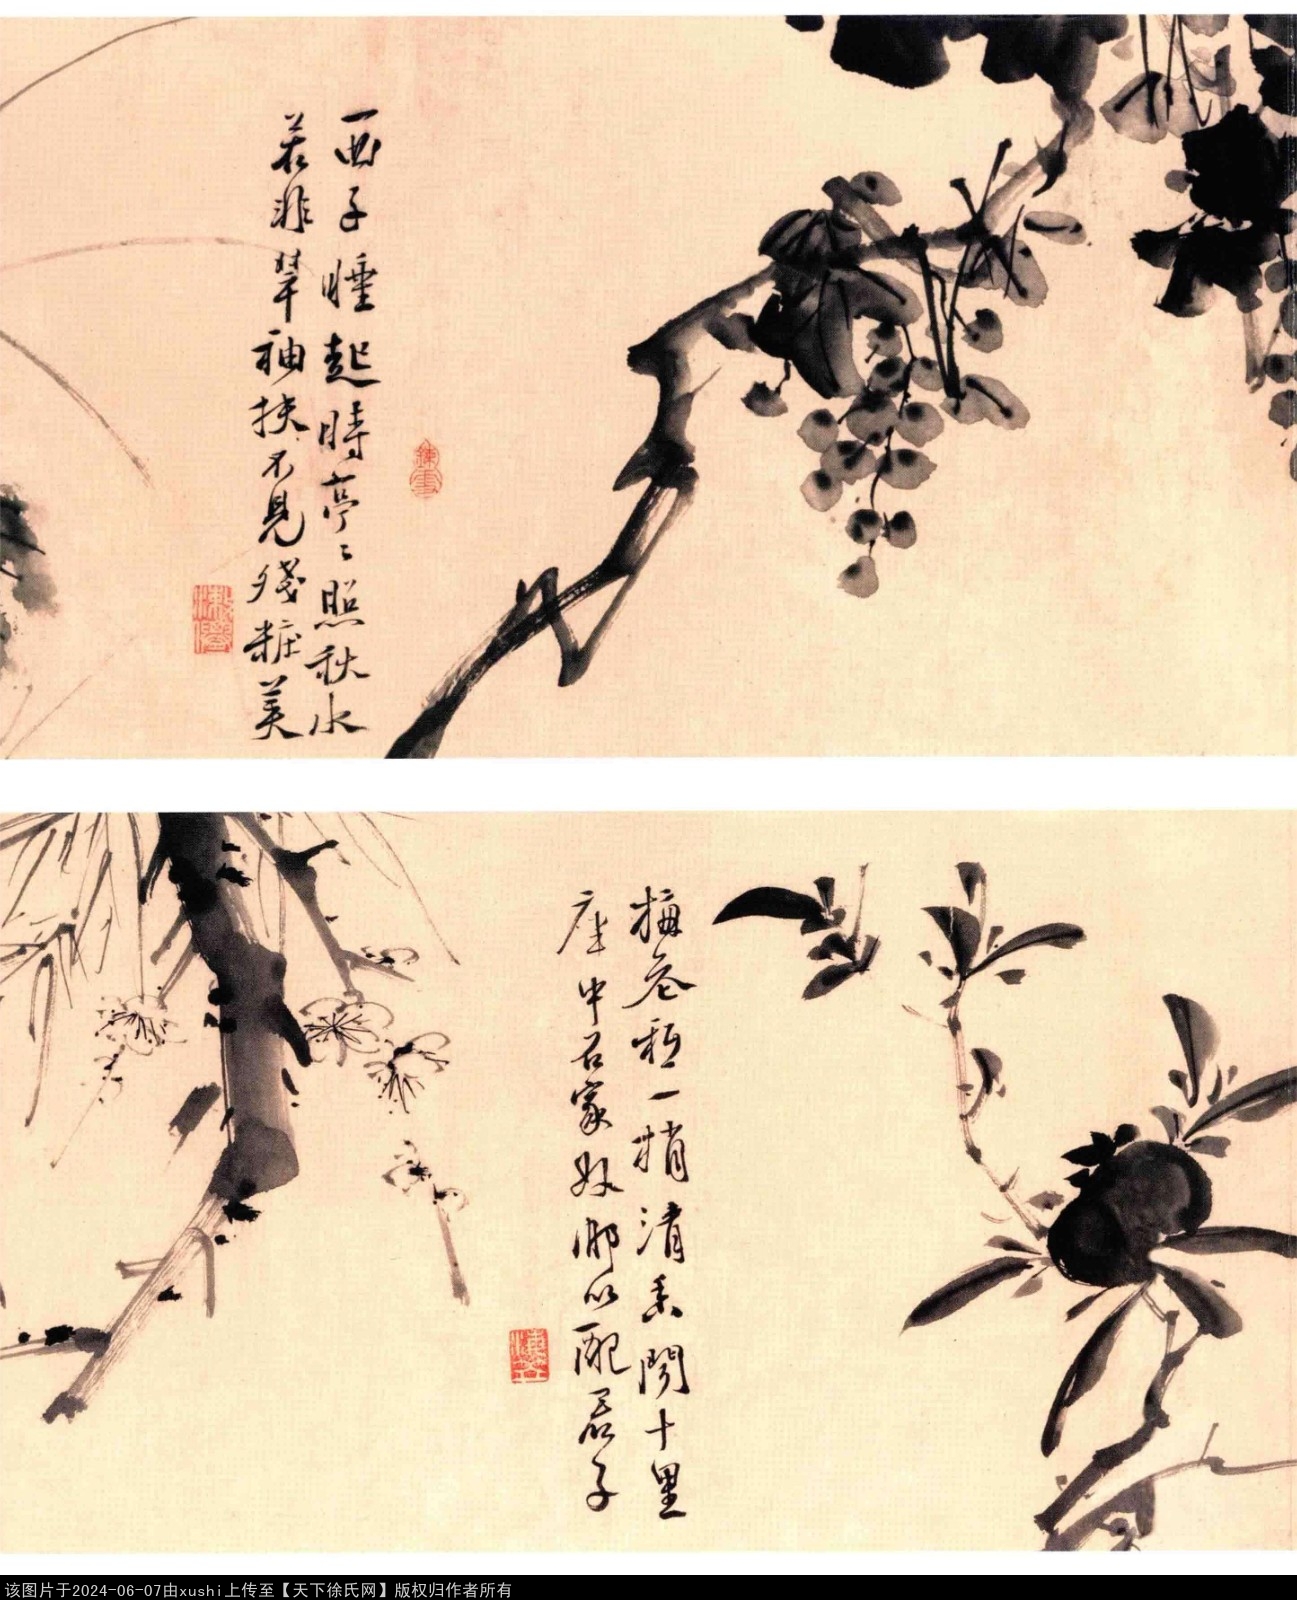 西子睡起時亭〻照秋水
若非翠袖扶不見殘粧美
梅花種一梢清香聞十里
座中石家奴那以配君子
该图片于2024-06-07由xushi上传至【天下徐氏网】版权归作者所有